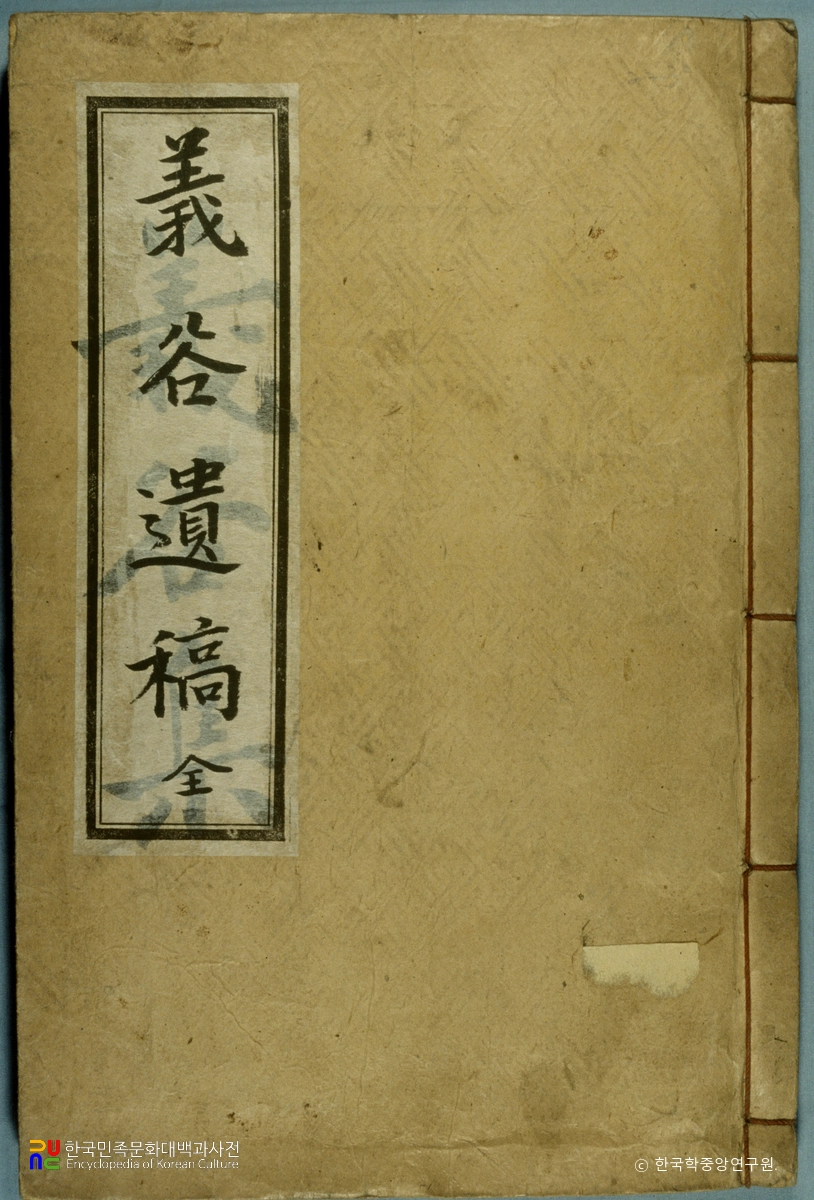 義谷遺稿 全
義谷集
한국민족문화대백과사전
Encyclopedia of Korean Culture
© 한국학중앙연구원